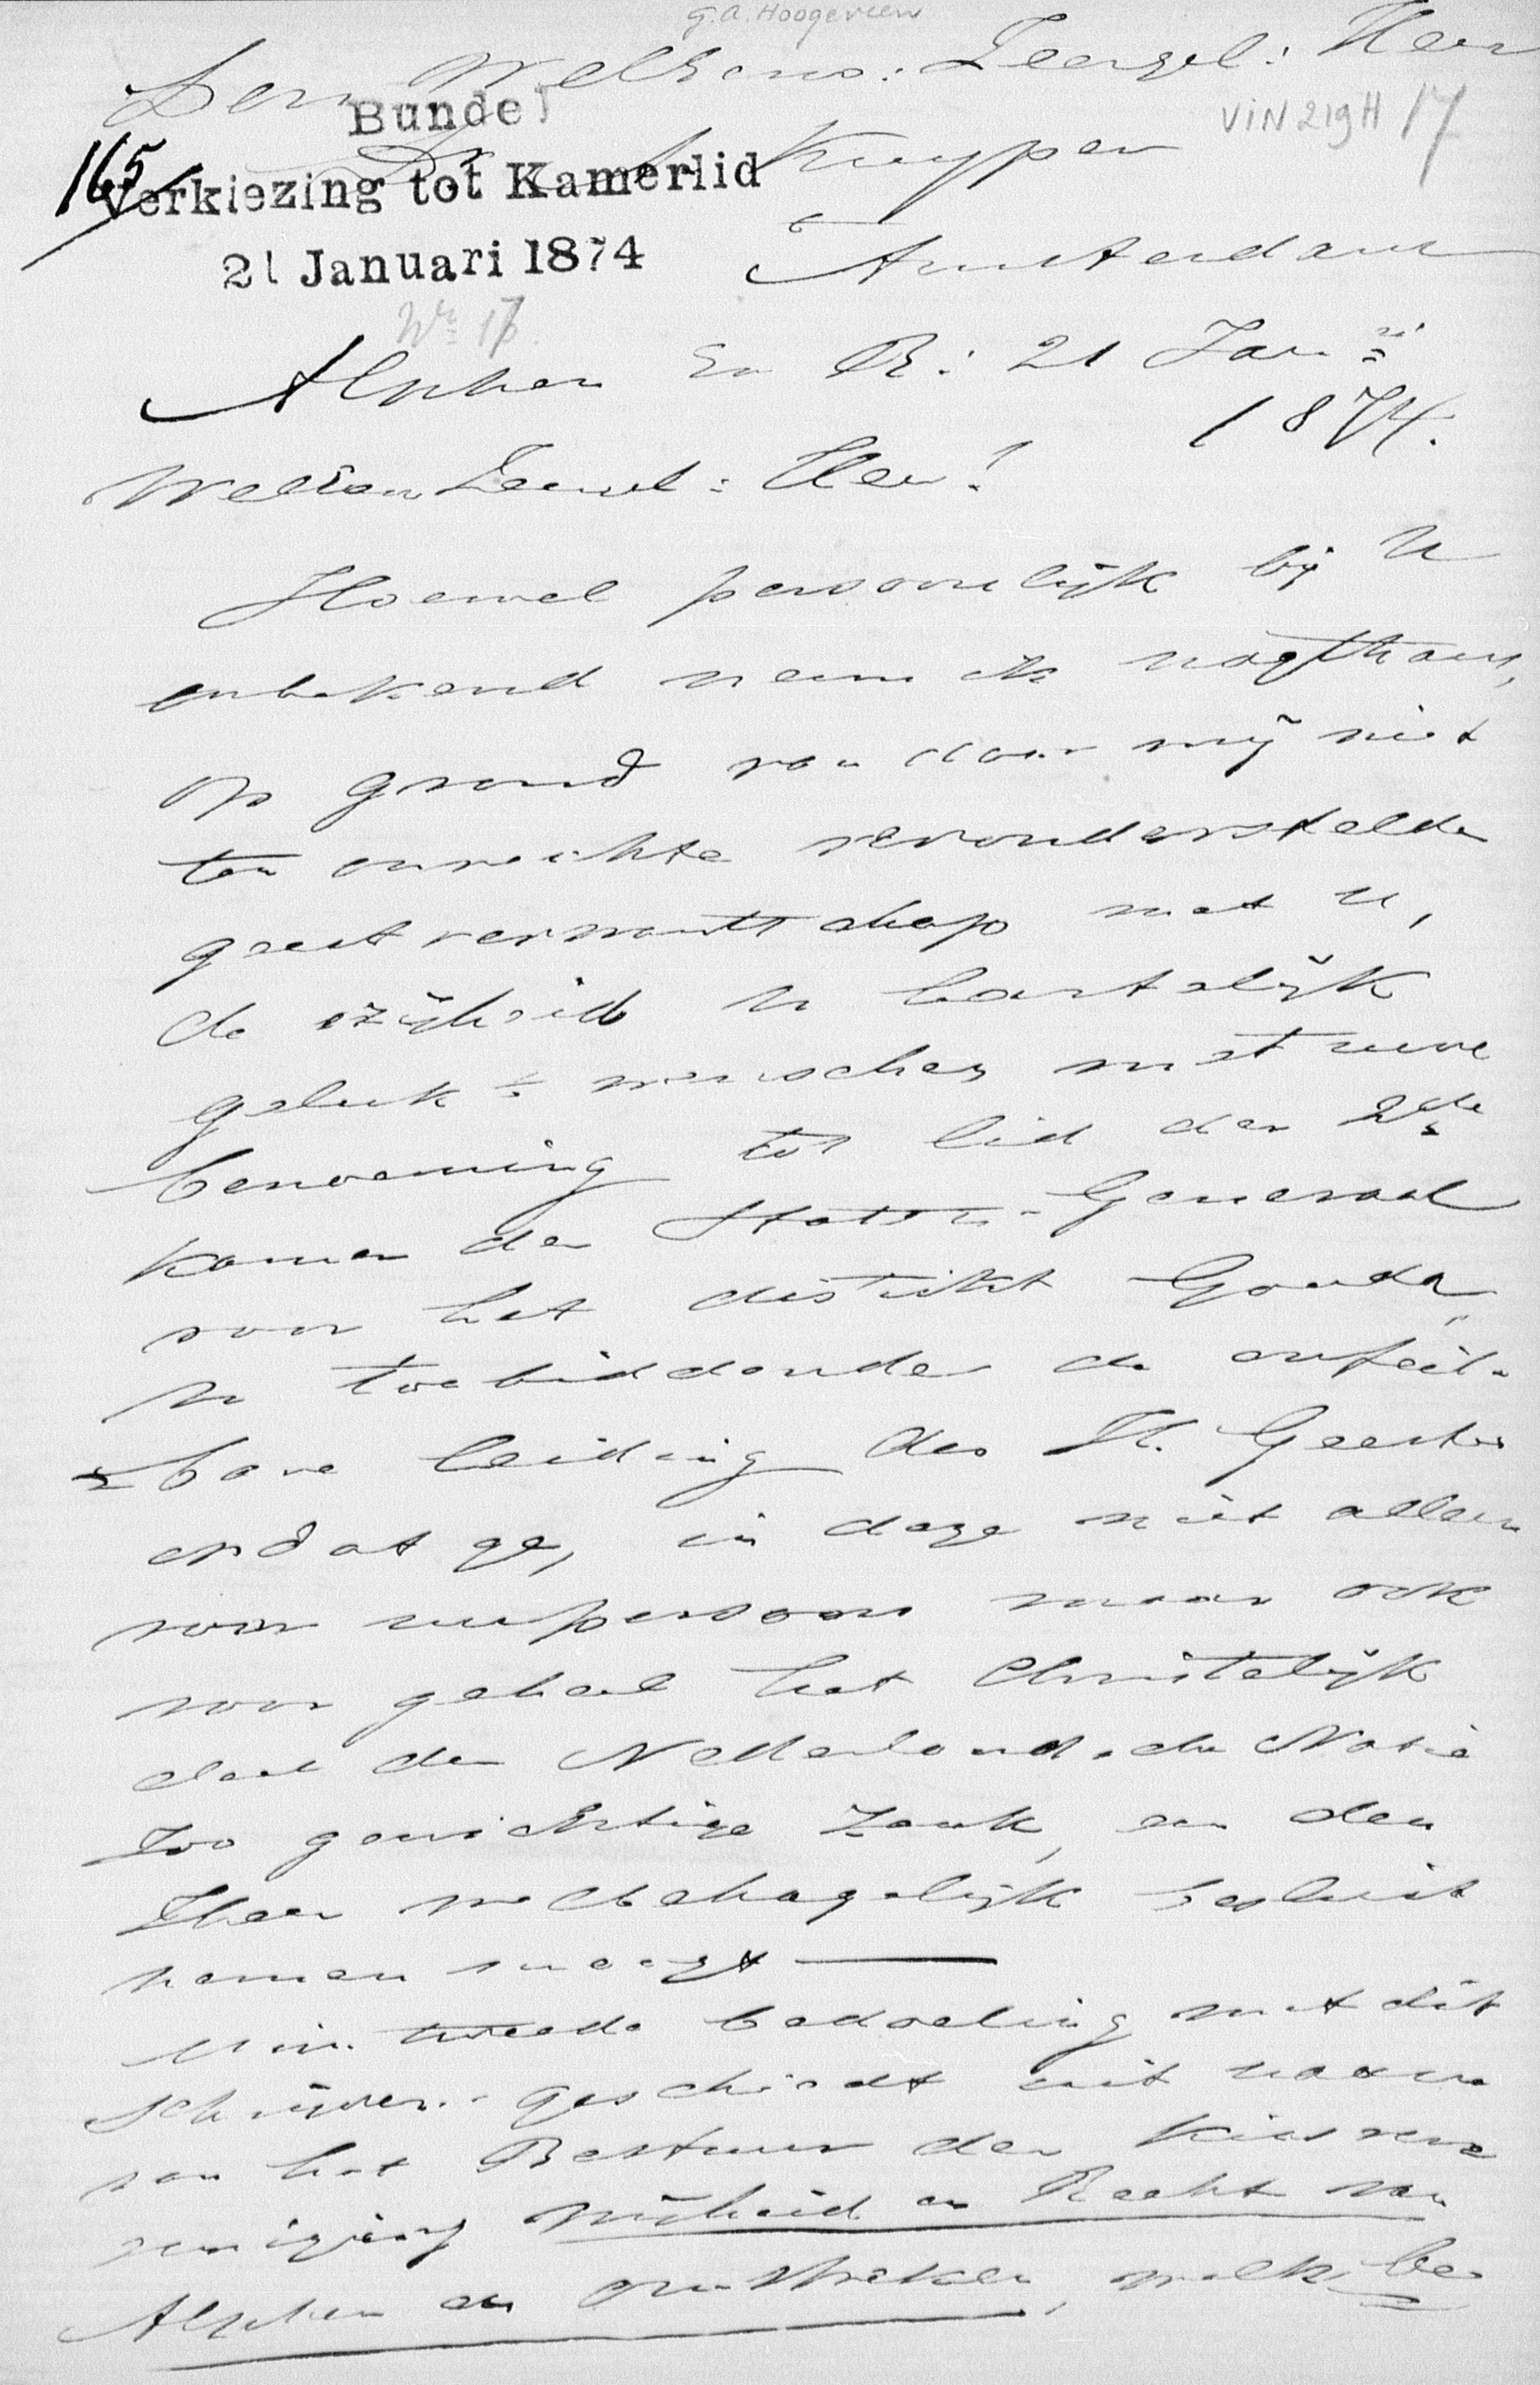 G.A. Hoogeveen
Den WelEerw: Zeergel: Heer
VIN 219H 17
Bundel
Dr A Kuyper
165
Verkiezing tot Kamerlid
te
Amsterdam
21 Januari 1874
No 17.
Alphen en R: 21 Janri
1874.
WelEerw Zeergel: Heer!
Hoewel persoonlijk bij U
onbekend neem ik nogthans,
op grond van door mij niet
ten onrechte veronderstelde
geestverwantschap met U,
de vrijheid U hartelijk
geluk te wenschen met uwe
benoeming tot lid der 2de
Kamer der Staten-Generaal
voor het distrikt Gouda,
U toebiddende de onfeil-
=bare leiding des H. Geestes
opdat ge, in deze niet alleen
voor uw persoon maar ook
voor geheel het Christelijk
deel der Nederlandsche Natie
zoo gewichtige zaak, een den
Heer welbehagelijk besluit
nemen moogt ——
Mijn tweede bedoeling met dit
schrijven geschiedt uit naam
van het Bestuur der Kiesvere
eeniging Vrijheid en Recht van
Alphen en omstreken, welk be=